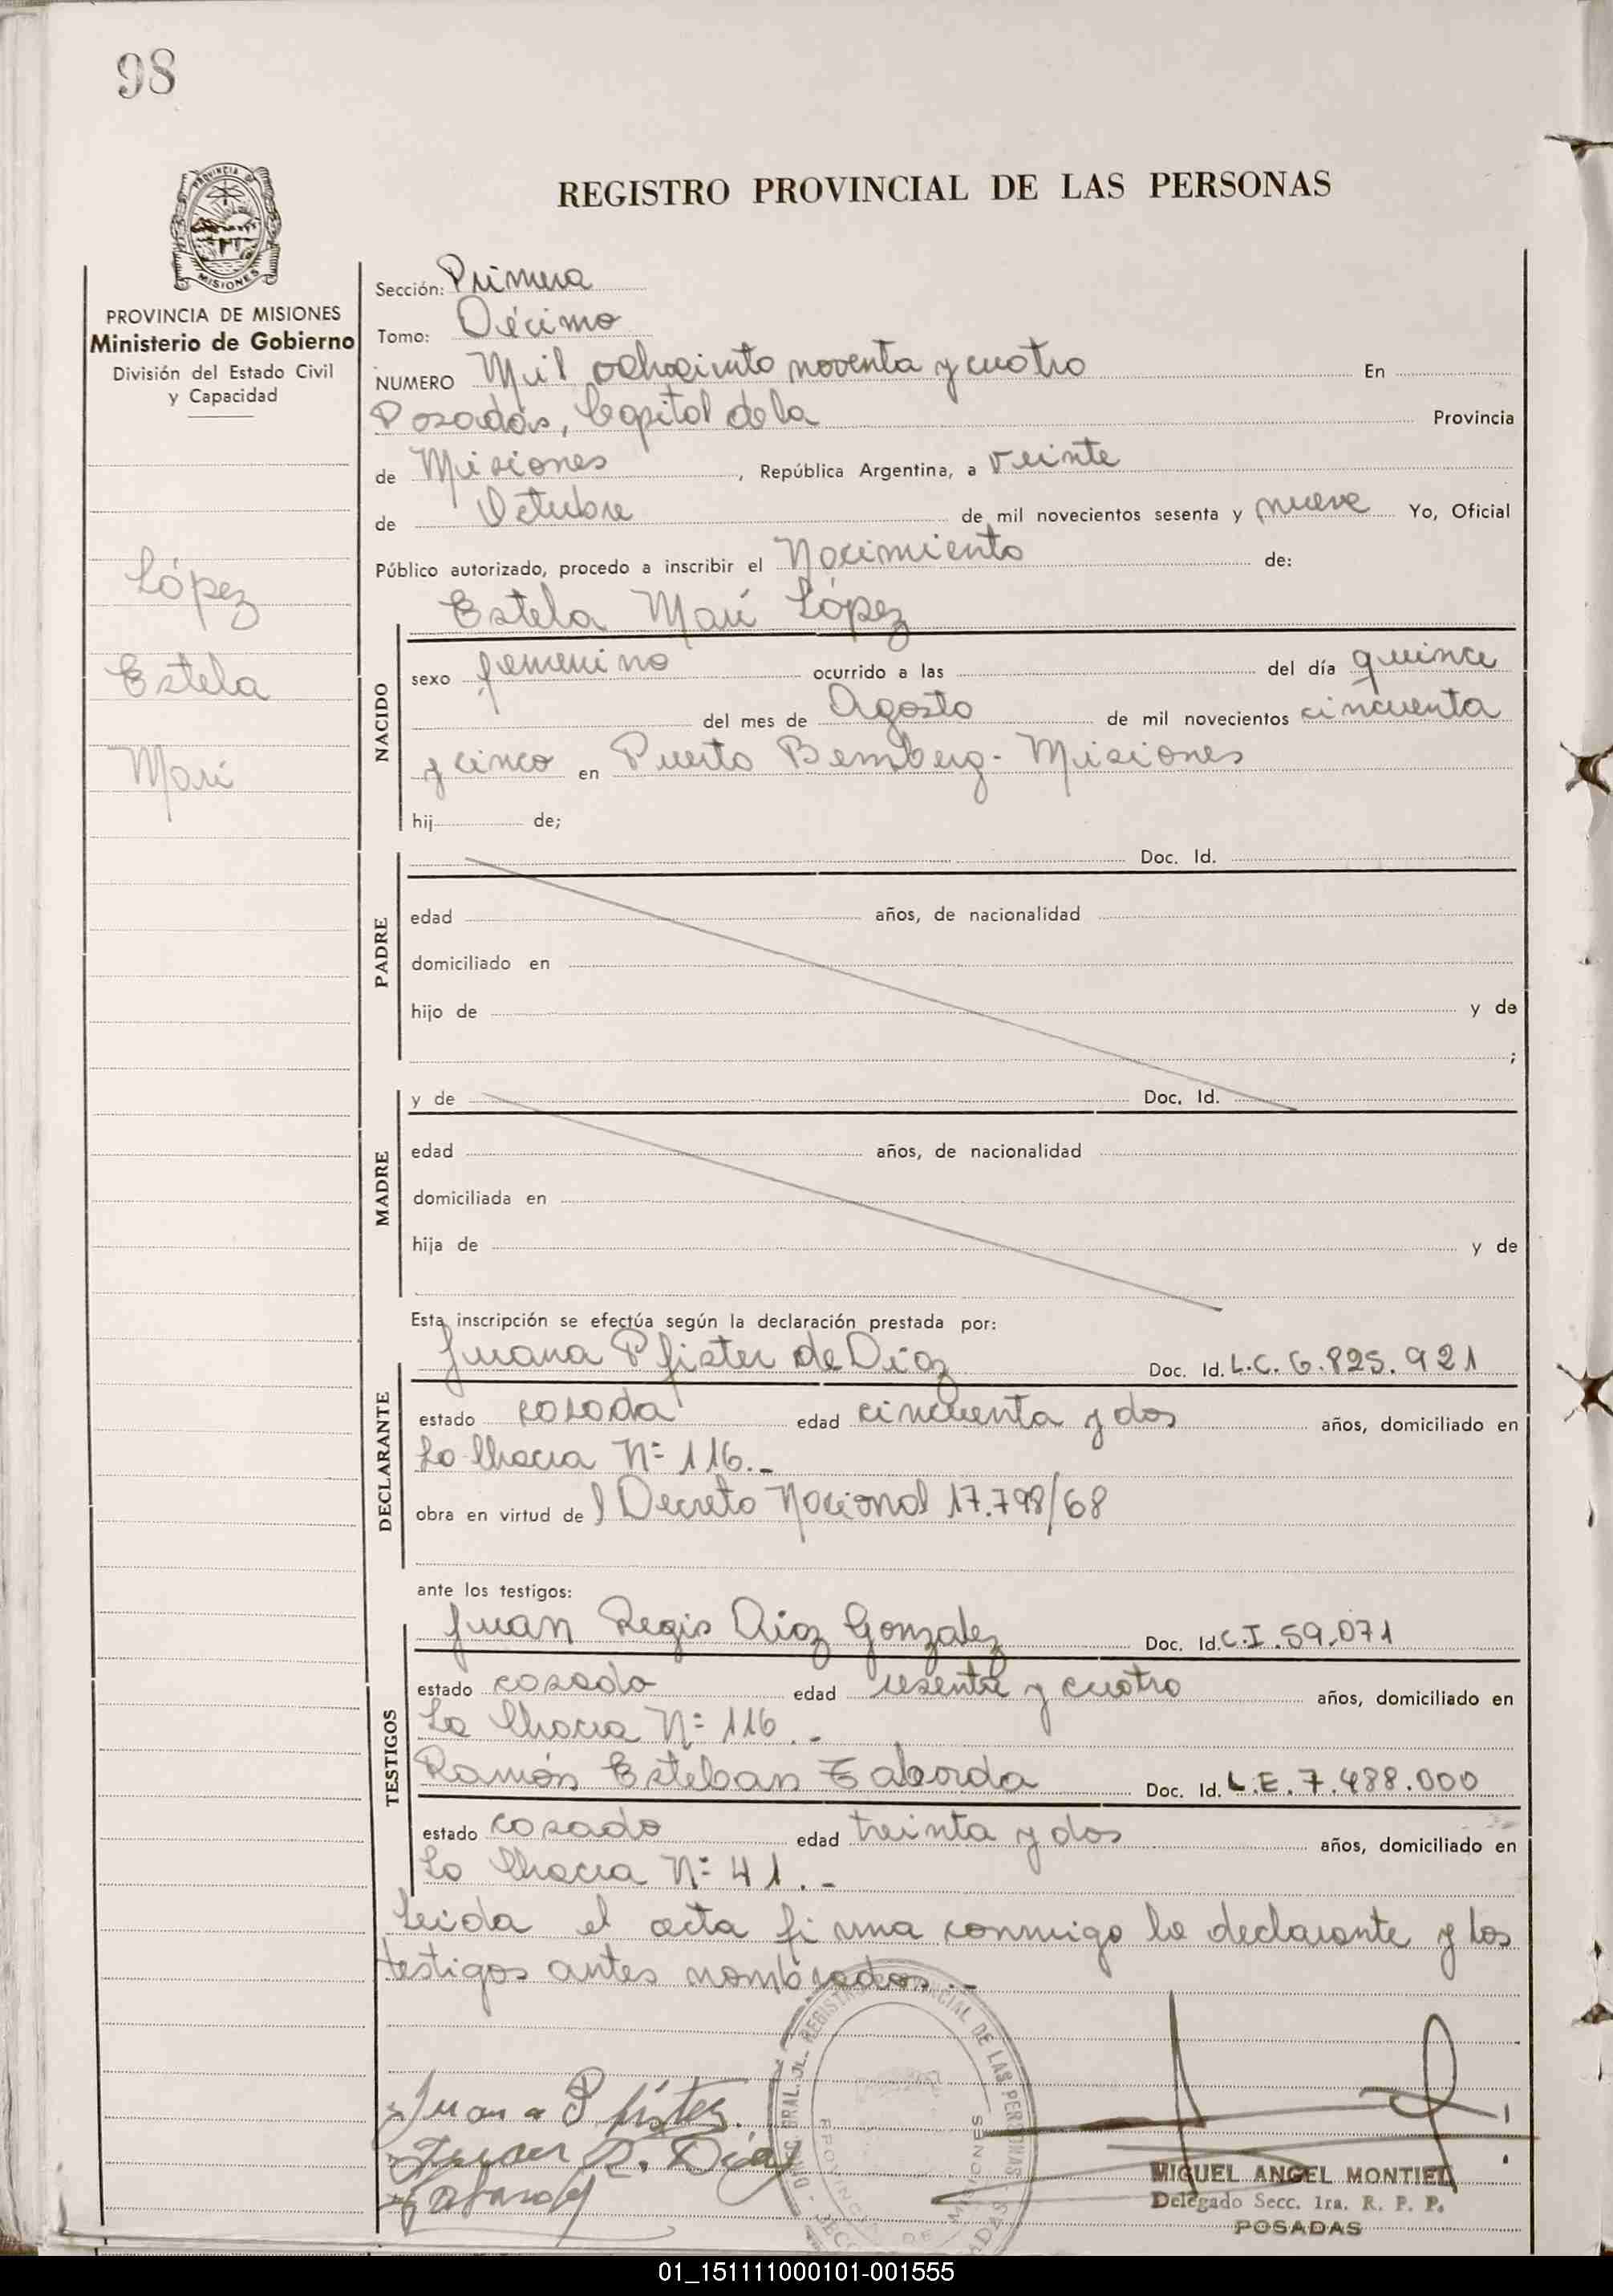 98
PROVINCIA DE
MISIONES
REGISTRO PROVINCIAL DE LAS PERSONAS
PROVINCIA DE MISIONES
Ministerio de Gobierno
División del Estado Civil
y Capacidad
López
Estela
Mari
Sección: Primera
Tomo: Décimo
NUMERO Mil ochociento noventa y cuatro En
Posadas, Capital de la Provincia
de Misiones, República Argentina, a veinte
de Octubre de mil novecientos sesenta y nueve Yo, Oficial
Público autorizado, procedo a inscribir el Nacimiento de:
Estela Mari López
NACIDO
sexo femenino ocurrido a las del día quince
del mes de Agosto de mil novecientos cincuenta
y cinco en Puerto Bemberg - Misiones
hij de;
PADRE
Doc. Id.
edad años, de nacionalidad
domiciliado en
hijo de y de
;
MADRE
y de Doc. Id.
edad años, de nacionalidad
domiciliada en
hija de y de
Esta inscripción se efectúa según la declaración prestada por:
DECLARANTE
Juana Pfister de Díaz Doc. Id. L.C. 6.825.921
estado casada edad cincuenta y dos años, domiciliado en
La Chacra Nº 116.-
obra en virtud de l Decreto Nacional 17.798/68
ante los testigos:
TESTIGOS
Juan Regis Díaz Gonzalez Doc. Id. C.I. 59.071
estado casado edad sesenta y cuatro años, domiciliado en
La Chacra Nº 116.-
Ramón Esteban Taborda Doc. Id. L.E. 7.488.000
estado casado edad treinta y dos años, domiciliado en
La Chacra Nº 41.-
Leida el acta firma conmigo la declarante y los
testigos antes nombrados.-
Juana Pfister.
Juan R. Díaz
REGISTRO PROVINCIAL DE LAS PERSONAS
PROVINCIA DE MISIONES
MIGUEL ANGEL MONTIEL
Delegado Secc. 1ra. R. P. P.
POSADAS
01_151111000101-001555